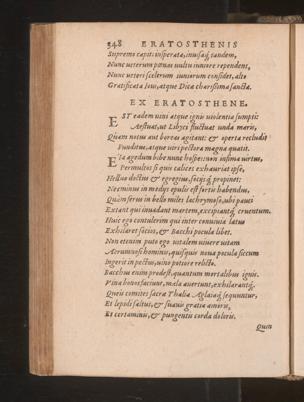 548 ERATOSTHENIS
Supremo capti insperata, inusaq́; tandem,
Nunc veterum pœnas multu iuniore rependent,
Nunc vetori scelerum iuniorum considet, alto
Gratificata Ioui, atque Dicæ charissima sancta.
EX ERATOSTHENE.
EST eadem uini atque ignis violentia sumpti:
Aestuat, ut Libyci fluctuat unda maris,
Quam notus aut boreas agitant: & operta recludit
Funditus, atque viri pectora magna quatit.
Eia agedum bibe nunc hospes: non infima virtus,
Permultos si quis calices exhauriat ipse,
Helluo doctus & egregius, sociiq́; propinet:
Nec minus in medys epulis est fortis habendus,
Quàm ferus in bello miles lachrymoso, ubi pauci
Extant qui inuadant martem, excipiantq́; cruentum.
Huic ego contulerim qui inter conuiuia latus
Exhilaret socios, & Bacchi pocula libet.
Non etenim puto ego vitalem uiuere uitam
Aerumnosi hominis, quisquis noua pocula siccum
Ingerit in pectus, uino potiore relicto.
Bacchus enim prodest, quantum mortalibus ignis.
Vina bonos faciunt, mala auertunt, exhilarantq́;
Queis comites sacræ Thalia Aglaiaq́; sequuntur,
Et lepidi saltus, & suauis gratia amoris,
Et certaminis, & pungentis corda doloris.
Quin